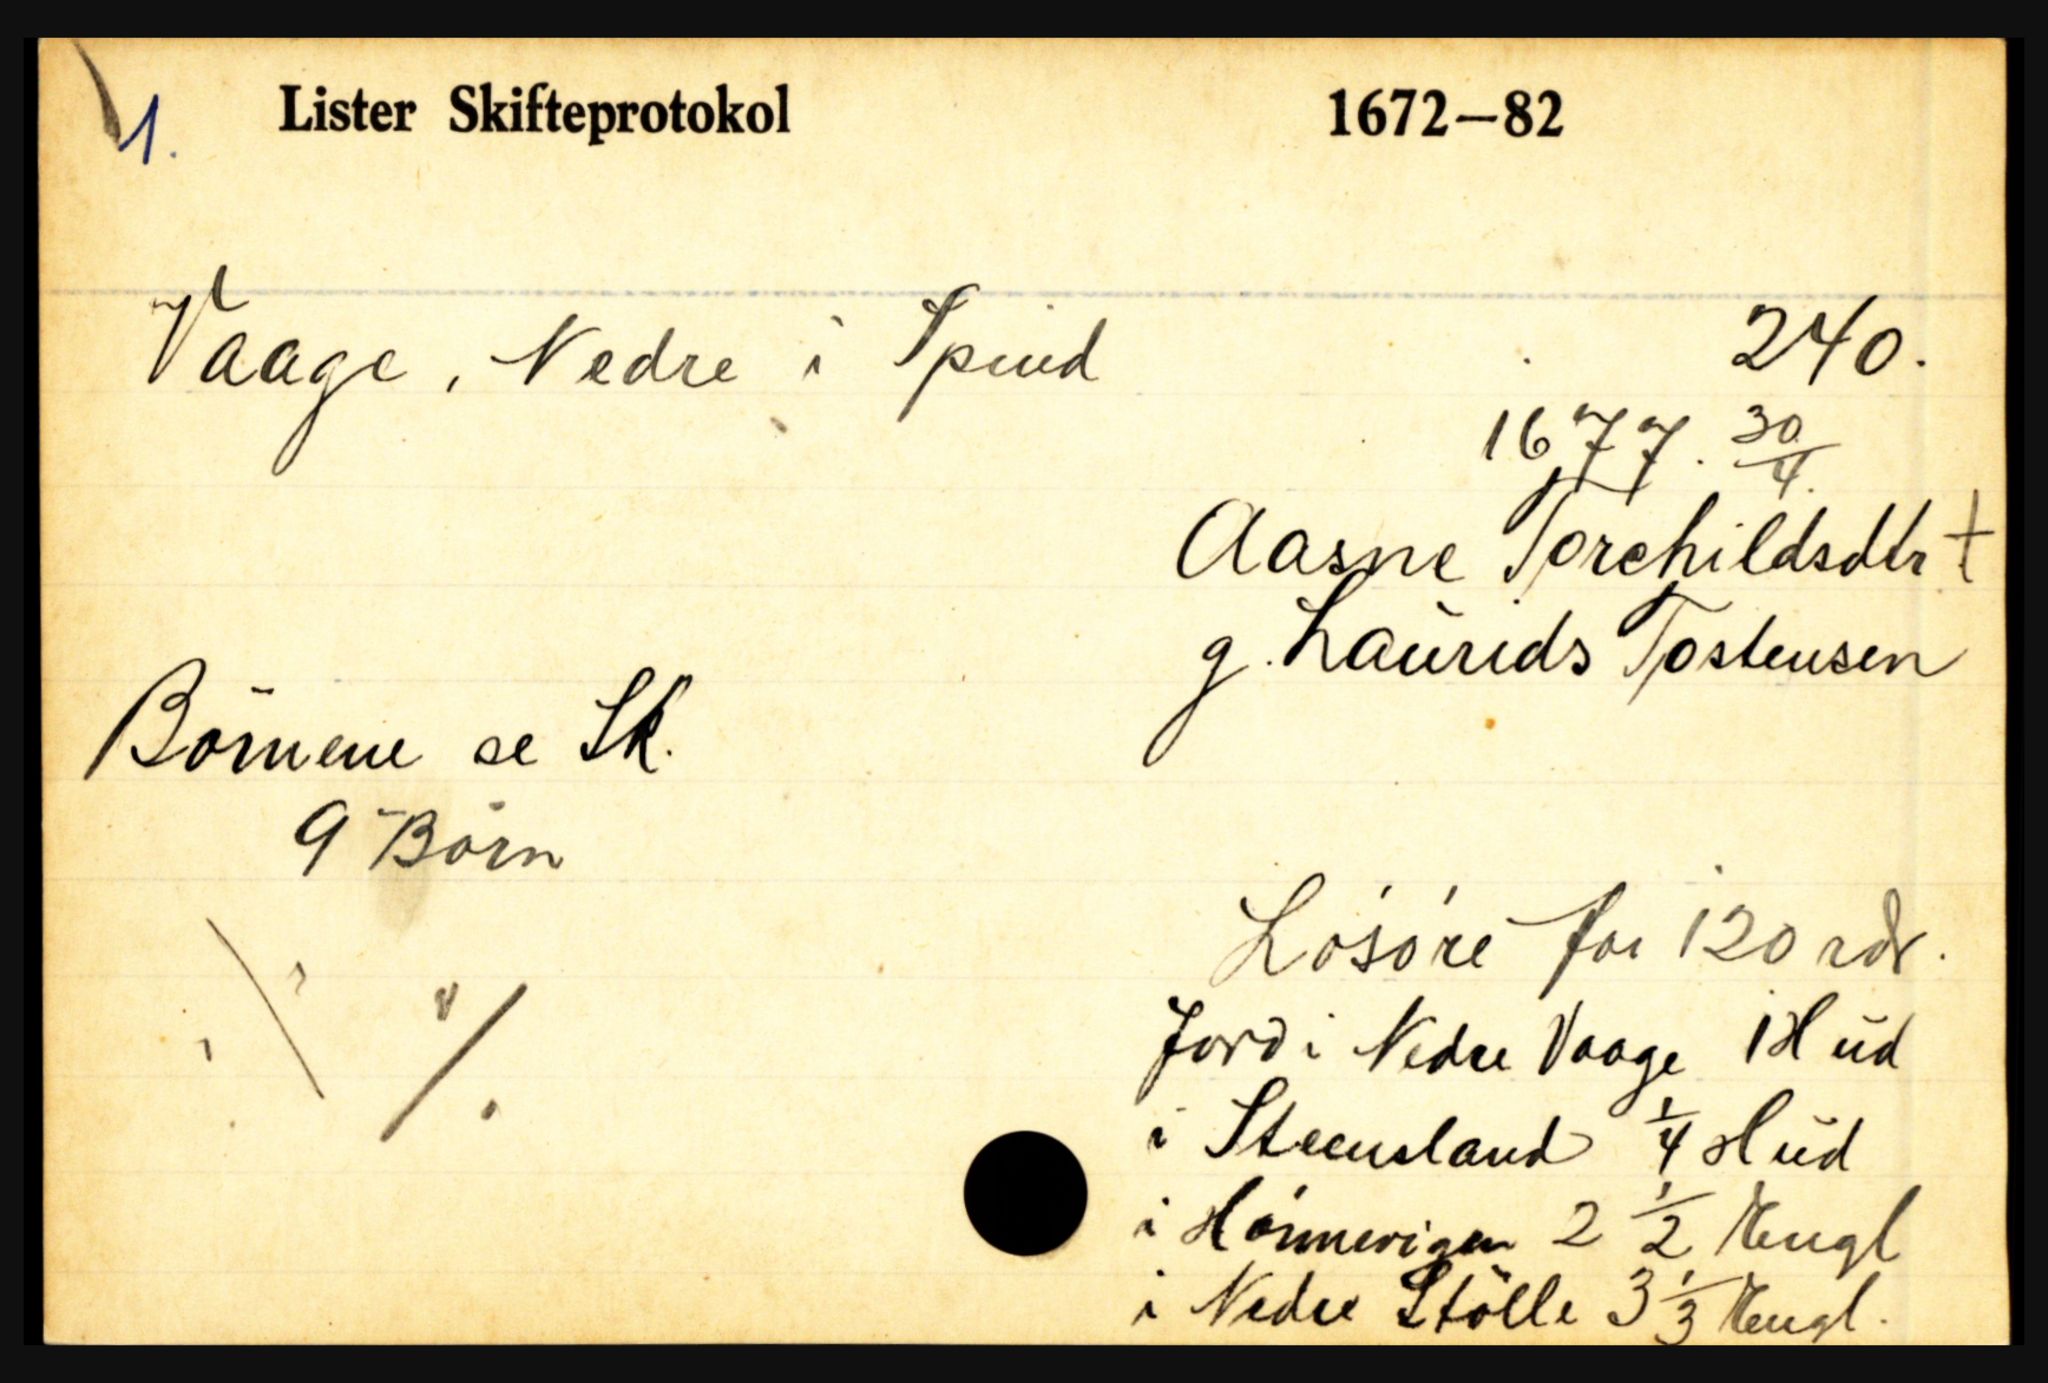 1. Lister Skifteprotokol 1672—82
Vaage, Nedre i Spind 240.
1677. 30/4.
Aasne Torchildsdtr †
g. Laŭrids Tostensen
Börnene se Sk.
9 Börn
Lösöre for 120 rdr.
Jord i Nedre Vaage 1 Hŭd
i Steensland 1/4 Hŭd
i 2 1/2 Engl
i Nedre Stölle 3 1/3 Engl.